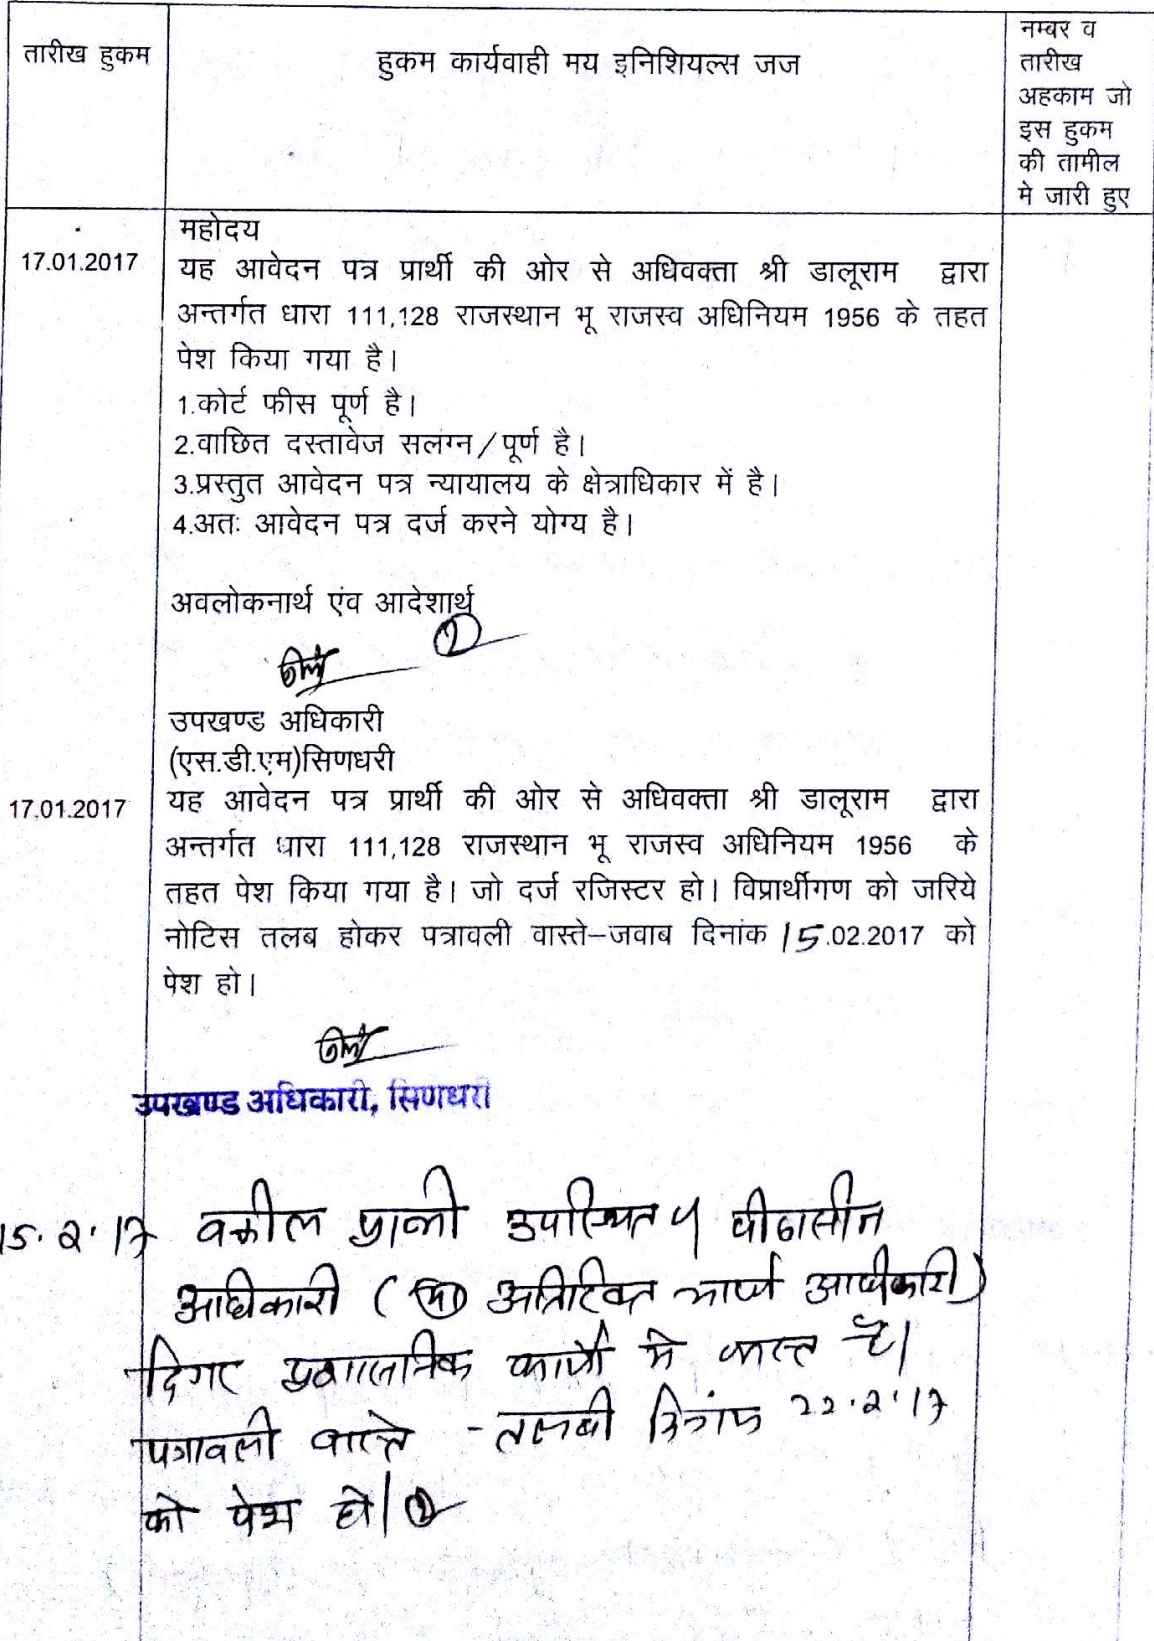 तारीख हुकम
हुकम कार्यवाही मय इनिशियल्स जज
नम्बर व
तारीख
अहकाम जो
इस हुकम
की तामील
मे जारी हुए
17.01.2017
महोदय
यह आवेदन पत्र प्रार्थी की ओर से अधिवक्ता श्री डालूराम द्वारा
अन्तर्गत धारा 111,128 राजस्थान भू राजस्व अधिनियम 1956 के तहत
पेश किया गया है।
1.कोर्ट फीस पूर्ण है।
2.वाछित दस्तावेज सलंग्न/पूर्ण है।
3.प्रस्तुत आवेदन पत्र न्यायालय के क्षेत्राधिकार में है।
4.अतः आवेदन पत्र दर्ज करने योग्य है।
अवलोकनार्थ एंव आदेशार्थ
उपखण्ड अधिकारी
(एस.डी.एम)सिणधरी
17.01.2017
यह आवेदन पत्र प्रार्थी की ओर से अधिवक्ता श्री डालूराम द्वारा
अन्तर्गत धारा 111,128 राजस्थान भू राजस्व अधिनियम 1956 के
तहत पेश किया गया है। जो दर्ज रजिस्टर हो। विप्रार्थीगण को जरिये
नोटिस तलब होकर पत्रावली वास्ते–जवाब दिनांक 15.02.2017 को
पेश हो।
उपखण्ड अधिकारी, सिणधरी
15.2.17 वकील प्रार्थी उपस्थित। पीठासीन
अधिकारी ( अतिरिक्त चार्ज अधिकारी)
दिगर प्रशासनिक कार्यो मे व्यस्त है।
पत्रावली वास्ते - तलबी दिनांक 22.2.17
को पेश हो।